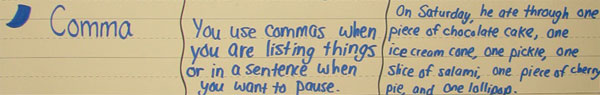 Comma
You use commas when
you are listing things
or in a sentence when
you want to pause.
On Saturday, he ate through one
piece of chocolate cake, one
ice cream cone, one pickle, one
slice of salami, one piece of cherry
pie, and one lollipop.